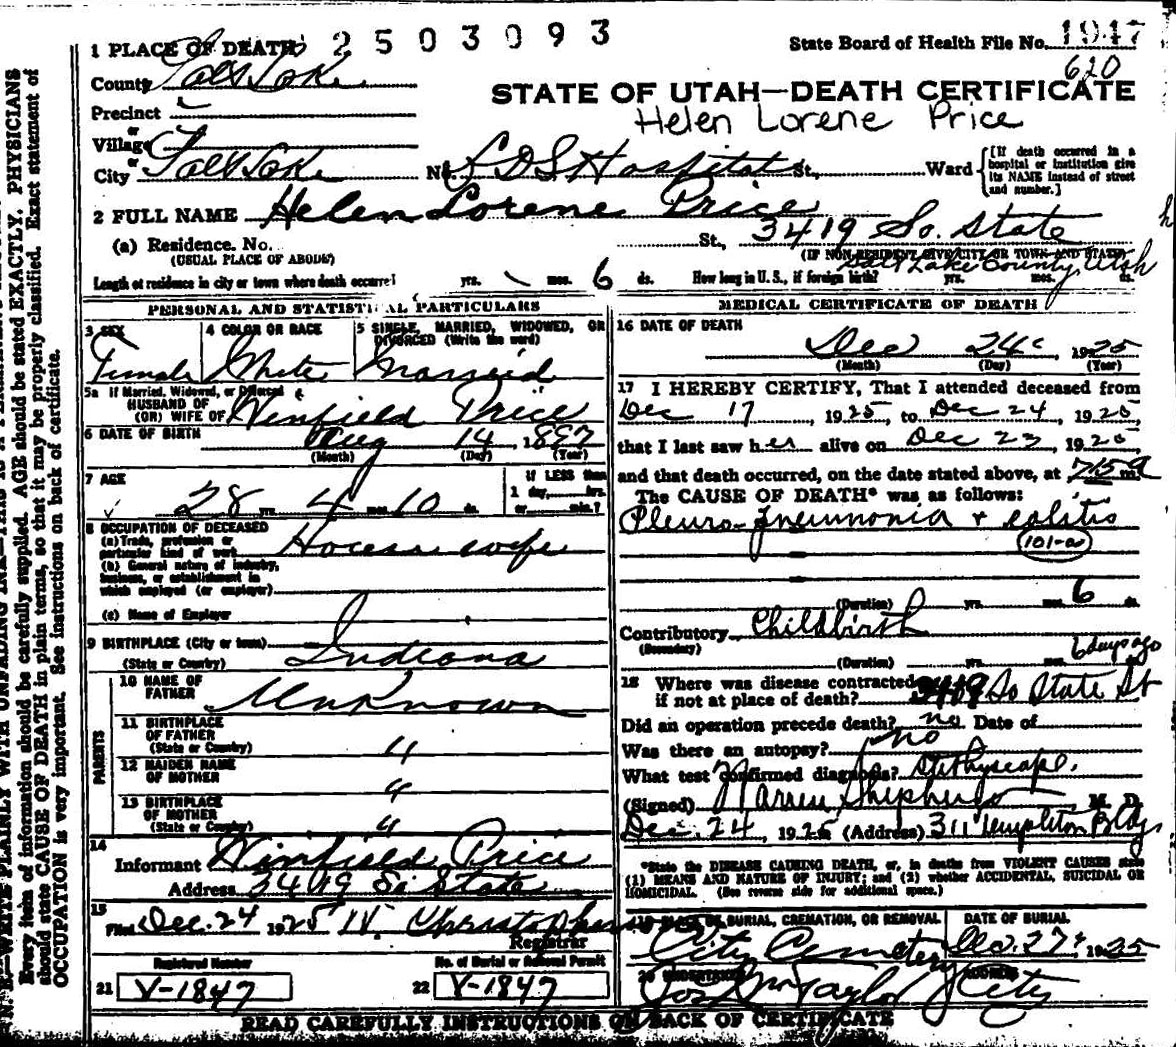 1 PLACE OF DEATH 2503093 State Board of Health File No. 1947
County Salt Lake 620
STATE OF UTAH—DEATH CERTIFICATE
Precinct
Helen Lorene Price
or
Village
or
City Salt Lake No. LDS Hospital St., Ward [If death occurred in a hospital or institution give its NAME instead of street and number.]
2 FULL NAME Helen Lorene Price
(a) Residence. No. St., 3419 So. State
(USUAL PLACE OF ABODE) (IF NON-RESIDENT GIVE CITY OR TOWN AND STATE)
Salt Lake County, Utah
Length of residence in city or town where death occurred yrs. mos. 6 ds. How long in U. S., if foreign birth? yrs. mos. ds.
PERSONAL AND STATISTICAL PARTICULARS
3 SEX 4 COLOR OR RACE 5 SINGLE, MARRIED, WIDOWED, OR DIVORCED (Write the word)
Female White Married
5a If Married, Widowed, or Divorced
HUSBAND OF
(OR) WIFE OF Winfield Price
6 DATE OF BIRTH Aug 14 1897
(Month) (Day) (Year)
7 AGE If LESS than
28 yrs. 4 mos. 10 ds. 1 day, hrs. or min.?
8 OCCUPATION OF DECEASED
(a) Trade, profession or particular kind of work House wife
(b) General nature of industry, business, or establishment in which employed (or employer)
(c) Name of Employer
9 BIRTHPLACE (City or town)
(State or Country) Indiana
PARENTS
10 NAME OF FATHER Unknown
11 BIRTHPLACE OF FATHER (State or Country) "
12 MAIDEN NAME OF MOTHER "
13 BIRTHPLACE OF MOTHER (State or Country) "
14
Informant Winfield Price
Address 3419 So State
15
Filed Dec. 24 1925
Registrar
Registered Number No. of Burial or Removal Permit
21 V-1847 22 V-1847
MEDICAL CERTIFICATE OF DEATH
16 DATE OF DEATH
Dec 24 1925
(Month) (Day) (Year)
17 I HEREBY CERTIFY, That I attended deceased from
Dec 17, 1925, to Dec 24, 1925,
that I last saw her alive on Dec 23, 1925,
and that death occurred, on the date stated above, at 715 a m.
The CAUSE OF DEATH* was as follows:
Pleuro-Pneumonia + colitis
101-a
(Duration) yrs. mos. 6 ds.
Contributory Childbirth
(Secondary) 6 days ago
(Duration) yrs. mos.
18 Where was disease contracted
if not at place of death? 3419 So State St
Did an operation precede death? no Date of
Was there an autopsy? no
What test confirmed diagnosis? Stethyscope.
(Signed) Warren Shepherd M. D.
Dec. 24, 1925 (Address) 311 Templeton Bldg
*State the DISEASE CAUSING DEATH, or, in deaths from VIOLENT CAUSES state
(1) MEANS AND NATURE OF INJURY; and (2) whether ACCIDENTAL, SUICIDAL OR
HOMICIDAL. (See reverse side for additional space.)
19 PLACE OF BURIAL, CREMATION, OR REMOVAL DATE OF BURIAL
City Cemetery Dec. 27, 1925
20 UNDERTAKER ADDRESS
Taylor City
READ CAREFULLY INSTRUCTIONS ON BACK OF CERTIFICATE
Every item of information should be carefully supplied. AGE should be stated EXACTLY. PHYSICIANS
should state CAUSE OF DEATH in plain terms, so that it may be properly classified. Exact statement of
OCCUPATION is very important. See instructions on back of certificate.